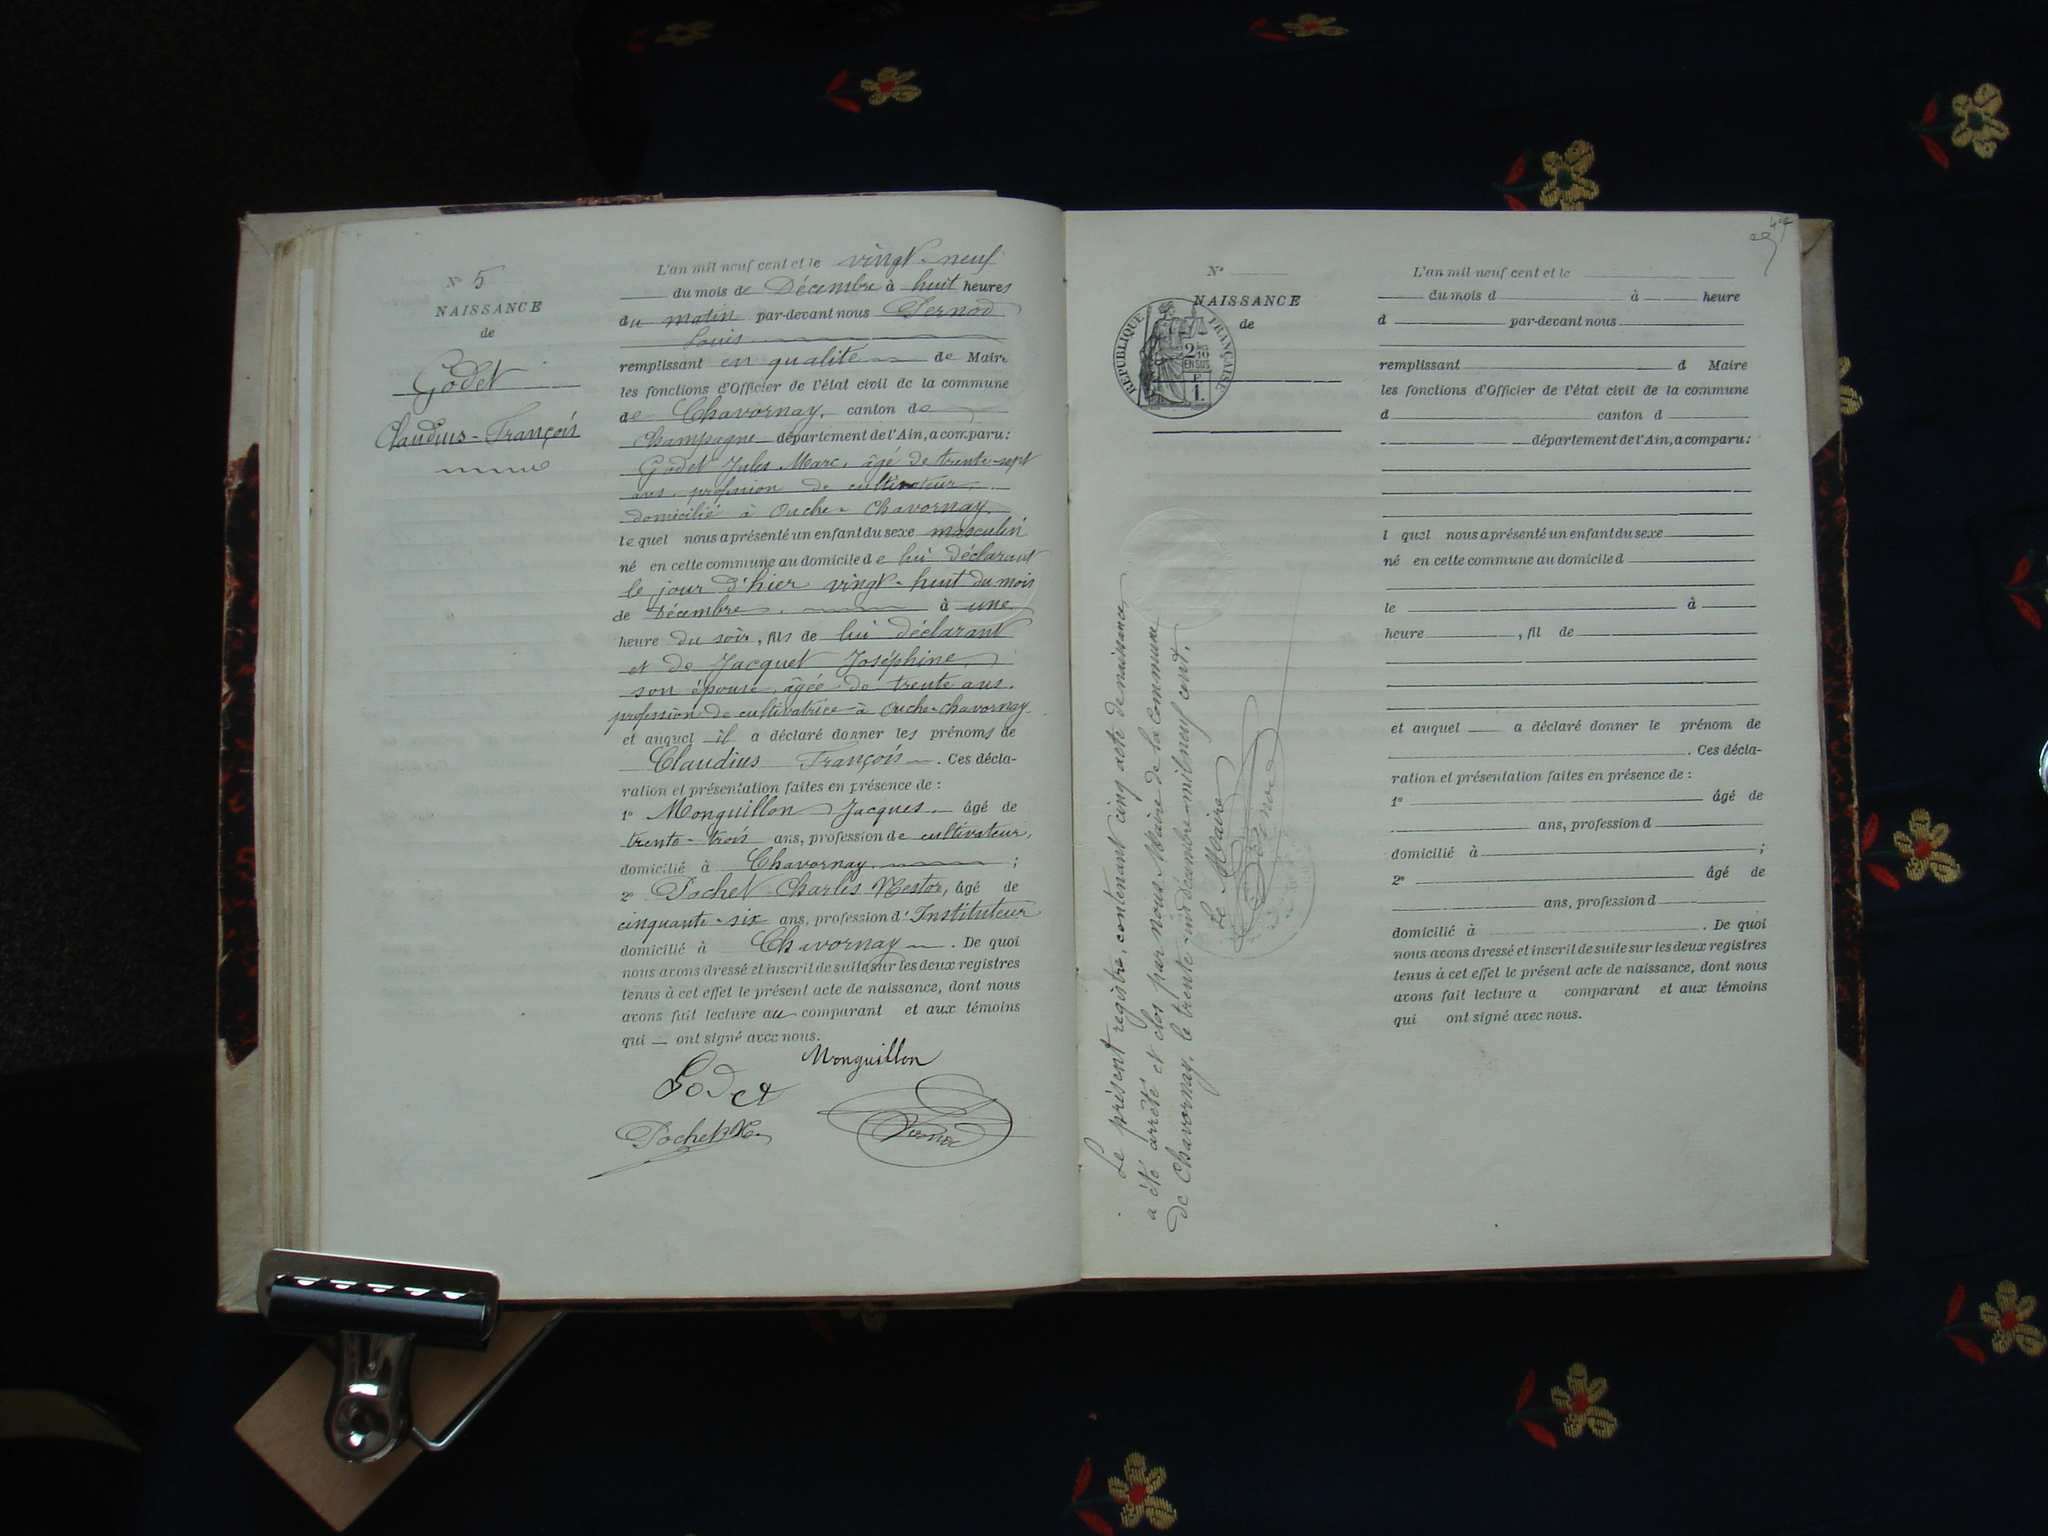 N° 5
NAISSANCE
de
Godet
Claudius-François
L'an mil neuf cent et le vingt-neuf
du mois de Décembre à huit heures
du matin par-devant nous Pernod
Louis
remplissant en qualité de Maire
les fonctions d'Officier de l'état civil de la commune
de Chavornay, canton de
Champagne département de l'Ain, a comparu:
Godet Jules Marc, âgé de trente-sept
ans, profession de cultivateur,
domicilié à Ouche-Chavornay
lequel nous a présenté un enfant du sexe masculin
né en cette commune au domicile de lui déclarant
le jour d'hier vingt-huit du mois
de Décembre, à une
heure du soir, fils de lui déclarant
et de Jacquet Joséphine,
son épouse, âgée de trente ans,
profession de cultivatrice à Ouche-Chavornay
et auquel il a déclaré donner les prénoms de
Claudius François. Ces décla-
ration et présentation faites en présence de :
1° Monguillon Jacques, âgé de
trente-trois ans, profession de cultivateur,
domicilié à Chavornay ;
2° Pochet Charles Nestor, âgé de
cinquante-six ans, profession d'Instituteur
domicilié à Chavornay. De quoi
nous avons dressé et inscrit de suite sur les deux registres
tenus à cet effet le présent acte de naissance, dont nous
avons fait lecture au comparant et aux témoins
qui ont signé avec nous.
Monguillon
Godet
Pochet
Pernod
N°
NAISSANCE
de
RÉPUBLIQUE FRANÇAISE
2/10
EN SUS
F
1.
L'an mil neuf cent et le
du mois d à heure
d par-devant nous
remplissant d Maire
les fonctions d'Officier de l'état civil de la commune
d canton d
département de l'Ain, a comparu:
l quel nous a présenté un enfant du sexe
né en cette commune au domicile d
le à
heure , fil de
et auquel a déclaré donner le prénom de
. Ces décla-
ration et présentation faites en présence de :
1° âgé de
ans, profession d
domicilié à ;
2° âgé de
ans, profession d
domicilié à . De quoi
nous avons dressé et inscrit de suite sur les deux registres
tenus à cet effet le présent acte de naissance, dont nous
avons fait lecture a comparant et aux témoins
qui ont signé avec nous.
Le présent registre, contenant cinq acte de naissance
a été arrêté et clos par nous, Maire de la commune
de Chavornay, le trente-un décembre mil neuf cent.
Le Maire
Pernod